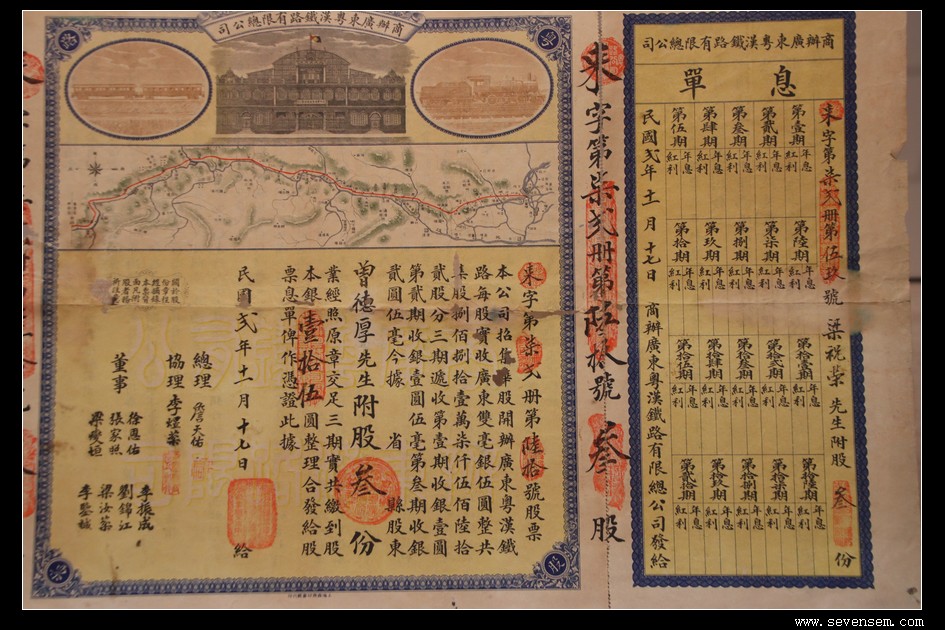 商辦廣東粵漢鐵路有限總公司
來字第柒弍册第陸拾號股票
本公司招集華股開辦廣東粵漢鐵
路每股實收廣東雙毫銀伍圓整共
集股捌佰捌拾壹萬柒仟伍佰陸拾
貳股分三期遞收第壹期收銀壹圓
第貳期收銀壹圓伍毫第叁期收銀
貳圓伍毫今據 省 縣股東
曾德厚先生附股叁份
業經照原章交足三期實共繳到股
本銀壹拾伍圓整理合發給股
票息單俾作憑證此據
總理 詹天佑
協理 李煜
董事
徐恩佑
張家
梁
李振成
劉錦江
梁汝
李
民國弍年十一月十七日 給
來字第柒弍册第陸拾號 叁股
商辦廣東粵漢鐵路有限總公司
息單
來字第柒弍册第伍玖號 梁税榮 先生附股 叁 份
第壹期 年息 紅利
第貳期 年息 紅利
第叁期 年息 紅利
第肆期 年息 紅利
第伍期 年息 紅利
第陸期 年息 紅利
第柒期 年息 紅利
第捌期 年息 紅利
第玖期 年息 紅利
第拾期 年息 紅利
第拾壹期 年息 紅利
第拾貳期 年息 紅利
第拾叁期 年息 紅利
第拾肆期 年息 紅利
第拾伍期 年息 紅利
第拾陸期 年息 紅利
第拾柒期 年息 紅利
第拾捌期 年息 紅利
第拾玖期 年息 紅利
第貳拾期 年息 紅利
民國弍年十一月十七日 商辦廣東粵漢鐵路有限總公司發給
www.sevensem.com